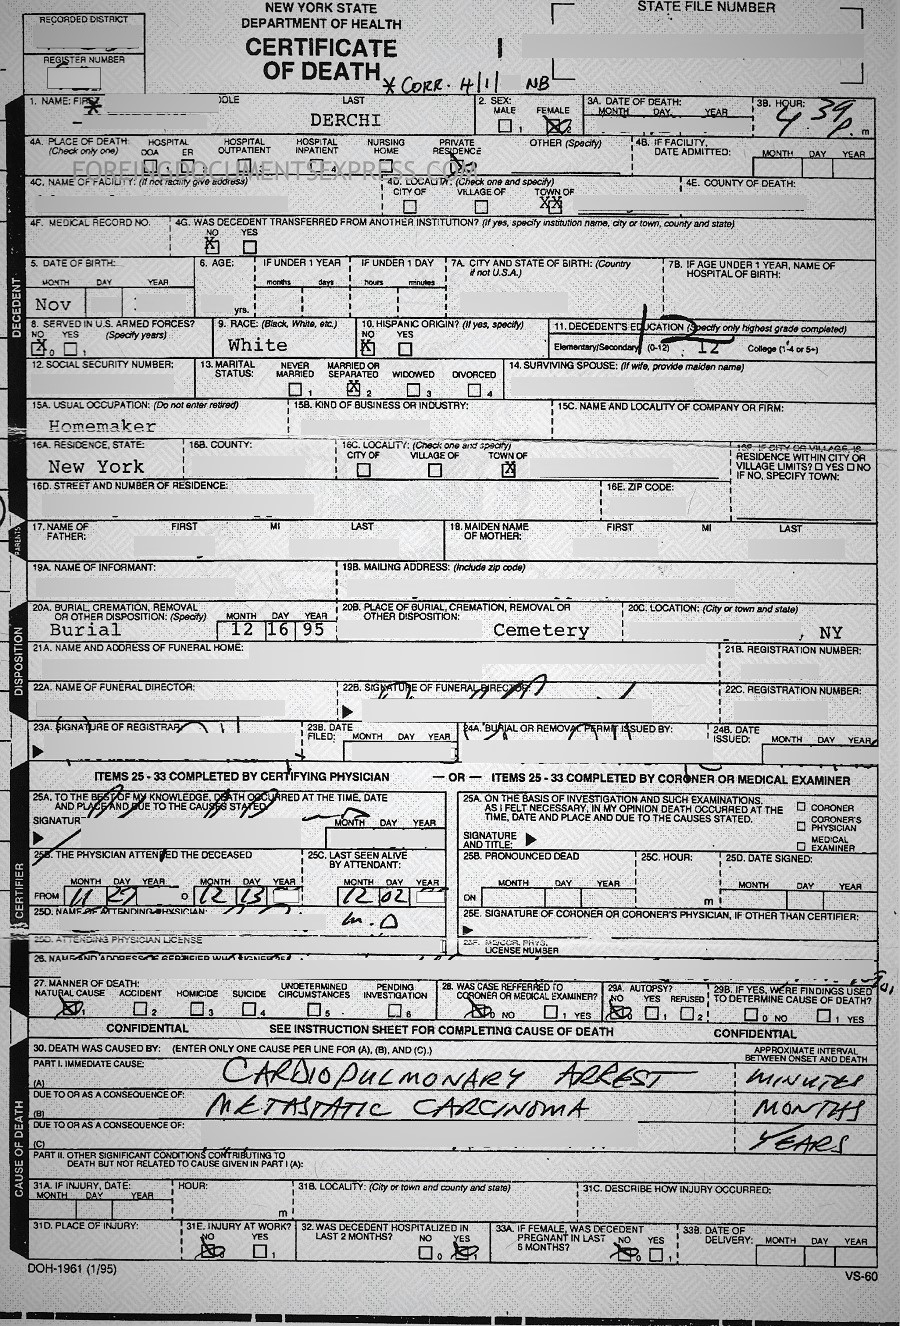 NEW YORK STATE
DEPARTMENT OF HEALTH
CERTIFICATE
OF DEATH
RECORDED DISTRICT
REGISTER NUMBER
STATE FILE NUMBER
* CORR. 4/1/ NB
1. NAME: FIRST LAST
DERCHI
2. SEX: MALE FEMALE
3A. DATE OF DEATH: MONTH DAY YEAR
3B. HOUR: 4 39 p. m
4A. PLACE OF DEATH: (Check only one)
HOSPITAL DOA ER
HOSPITAL OUTPATIENT
HOSPITAL INPATIENT
NURSING HOME
PRIVATE RESIDENCE
OTHER (Specify)
4B. IF FACILITY, DATE ADMITTED: MONTH DAY YEAR
FOREINGDOCUMENTSEXPRESS.COM
4C. NAME OF FACILITY: (If not facility give address)
4D. LOCALITY: (Check one and specify)
CITY OF VILLAGE OF TOWN OF
XX
4E. COUNTY OF DEATH:
4F. MEDICAL RECORD NO.
4G. WAS DECEDENT TRANSFERRED FROM ANOTHER INSTITUTION? (If yes, specify institution name, city or town, county and state)
NO YES
X
5. DATE OF BIRTH: MONTH DAY YEAR
Nov
6. AGE: yrs.
IF UNDER 1 YEAR months days
IF UNDER 1 DAY hours minutes
7A. CITY AND STATE OF BIRTH: (Country if not U.S.A.)
7B. IF AGE UNDER 1 YEAR, NAME OF HOSPITAL OF BIRTH:
DECEDENT
8. SERVED IN U.S. ARMED FORCES? (Specify years)
NO YES
X 0 1
9. RACE: (Black, White, etc.)
White
10. HISPANIC ORIGIN? (If yes, specify)
NO YES
X
11. DECEDENT'S EDUCATION (Specify only highest grade completed)
Elementary/Secondary (0-12) 12 College (1-4 or 5+)
12
12. SOCIAL SECURITY NUMBER:
13. MARITAL STATUS:
NEVER MARRIED 1 MARRIED OR SEPARATED X 2 WIDOWED 3 DIVORCED 4
14. SURVIVING SPOUSE: (If wife, provide maiden name)
15A. USUAL OCCUPATION: (Do not enter retired)
Homemaker
15B. KIND OF BUSINESS OR INDUSTRY:
15C. NAME AND LOCALITY OF COMPANY OR FIRM:
16A. RESIDENCE, STATE:
New York
16B. COUNTY:
16C. LOCALITY: (Check one and specify)
CITY OF VILLAGE OF TOWN OF
X
16F. IF CITY OR VILLAGE, IS RESIDENCE WITHIN CITY OR VILLAGE LIMITS? YES NO
IF NO, SPECIFY TOWN:
16D. STREET AND NUMBER OF RESIDENCE:
16E. ZIP CODE:
PARENTS
17. NAME OF FATHER: FIRST MI LAST
18. MAIDEN NAME OF MOTHER: FIRST MI LAST
19A. NAME OF INFORMANT:
19B. MAILING ADDRESS: (Include zip code)
DISPOSITION
20A. BURIAL, CREMATION, REMOVAL OR OTHER DISPOSITION: (Specify)
MONTH DAY YEAR
Burial 12 16 95
20B. PLACE OF BURIAL, CREMATION, REMOVAL OR OTHER DISPOSITION:
Cemetery
20C. LOCATION: (City or town and state)
, NY
21A. NAME AND ADDRESS OF FUNERAL HOME:
21B. REGISTRATION NUMBER:
22A. NAME OF FUNERAL DIRECTOR:
22B. SIGNATURE OF FUNERAL DIRECTOR:
22C. REGISTRATION NUMBER:
23A. SIGNATURE OF REGISTRAR
23B. DATE FILED: MONTH DAY YEAR
24A. BURIAL OR REMOVAL PERMIT ISSUED BY:
24B. DATE ISSUED: MONTH DAY YEAR
ITEMS 25 - 33 COMPLETED BY CERTIFYING PHYSICIAN — OR — ITEMS 25 - 33 COMPLETED BY CORONER OR MEDICAL EXAMINER
CERTIFIER
25A. TO THE BEST OF MY KNOWLEDGE, DEATH OCCURRED AT THE TIME, DATE AND PLACE AND DUE TO THE CAUSES STATED
SIGNATUR
MONTH DAY YEAR
25A. ON THE BASIS OF INVESTIGATION AND SUCH EXAMINATIONS. AS I FELT NECESSARY, IN MY OPINION DEATH OCCURRED AT THE TIME, DATE AND PLACE AND DUE TO THE CAUSES STATED.
CORONER
CORONER'S PHYSICIAN
MEDICAL EXAMINER
SIGNATURE AND TITLE:
25B. THE PHYSICIAN ATTENDED THE DECEASED
MONTH DAY YEAR MONTH DAY YEAR
FROM 11 27 O 12 13
25C. LAST SEEN ALIVE BY ATTENDANT:
MONTH DAY YEAR
12 02
25B. PRONOUNCED DEAD
MONTH DAY YEAR
ON
25C. HOUR: m
25D. DATE SIGNED: MONTH DAY YEAR
25D. NAME OF ATTENDING PHYSICIAN:
M.D
25E. SIGNATURE OF CORONER OR CORONER'S PHYSICIAN, IF OTHER THAN CERTIFIER:
25D. ATTENDING PHYSICIAN LICENSE
LICENSE NUMBER
26. NAME AND ADDRESS OF CERTIFIER WHO SIGNED
27. MANNER OF DEATH:
NATURAL CAUSE ACCIDENT 2 HOMICIDE 3 SUICIDE 4 UNDETERMINED CIRCUMSTANCES 5 PENDING INVESTIGATION 6
28. WAS CASE REFFERRED TO CORONER OR MEDICAL EXAMINER?
0 NO 1 YES
29A. AUTOPSY?
NO YES REFUSED
0 1 2
29B. IF YES, WERE FINDINGS USED TO DETERMINE CAUSE OF DEATH?
0 NO 1 YES
CONFIDENTIAL SEE INSTRUCTION SHEET FOR COMPLETING CAUSE OF DEATH CONFIDENTIAL
CAUSE OF DEATH
30. DEATH WAS CAUSED BY: (ENTER ONLY ONE CAUSE PER LINE FOR (A), (B), AND (C).)
APPROXIMATE INTERVAL BETWEEN ONSET AND DEATH
PART I. IMMEDIATE CAUSE:
(A) CARDIOPULMONARY ARREST MINUTES
DUE TO OR AS A CONSEQUENCE OF:
(B) METASTATIC CARCINOMA MONTHS
DUE TO OR AS A CONSEQUENCE OF:
(C) YEARS
PART II. OTHER SIGNIFICANT CONDITIONS CONTRIBUTING TO DEATH BUT NOT RELATED TO CAUSE GIVEN IN PART I (A):
31A. IF INJURY, DATE: MONTH DAY YEAR
HOUR: m
31B. LOCALITY: (City or town and county and state)
31C. DESCRIBE HOW INJURY OCCURRED:
31D. PLACE OF INJURY:
31E. INJURY AT WORK?
NO YES
1
32. WAS DECEDENT HOSPITALIZED IN LAST 2 MONTHS?
NO YES
0
33A. IF FEMALE, WAS DECEDENT PREGNANT IN LAST 6 MONTHS?
NO YES
0 1
33B. DATE OF DELIVERY: MONTH DAY YEAR
DOH-1961 (1/95)
VS-60